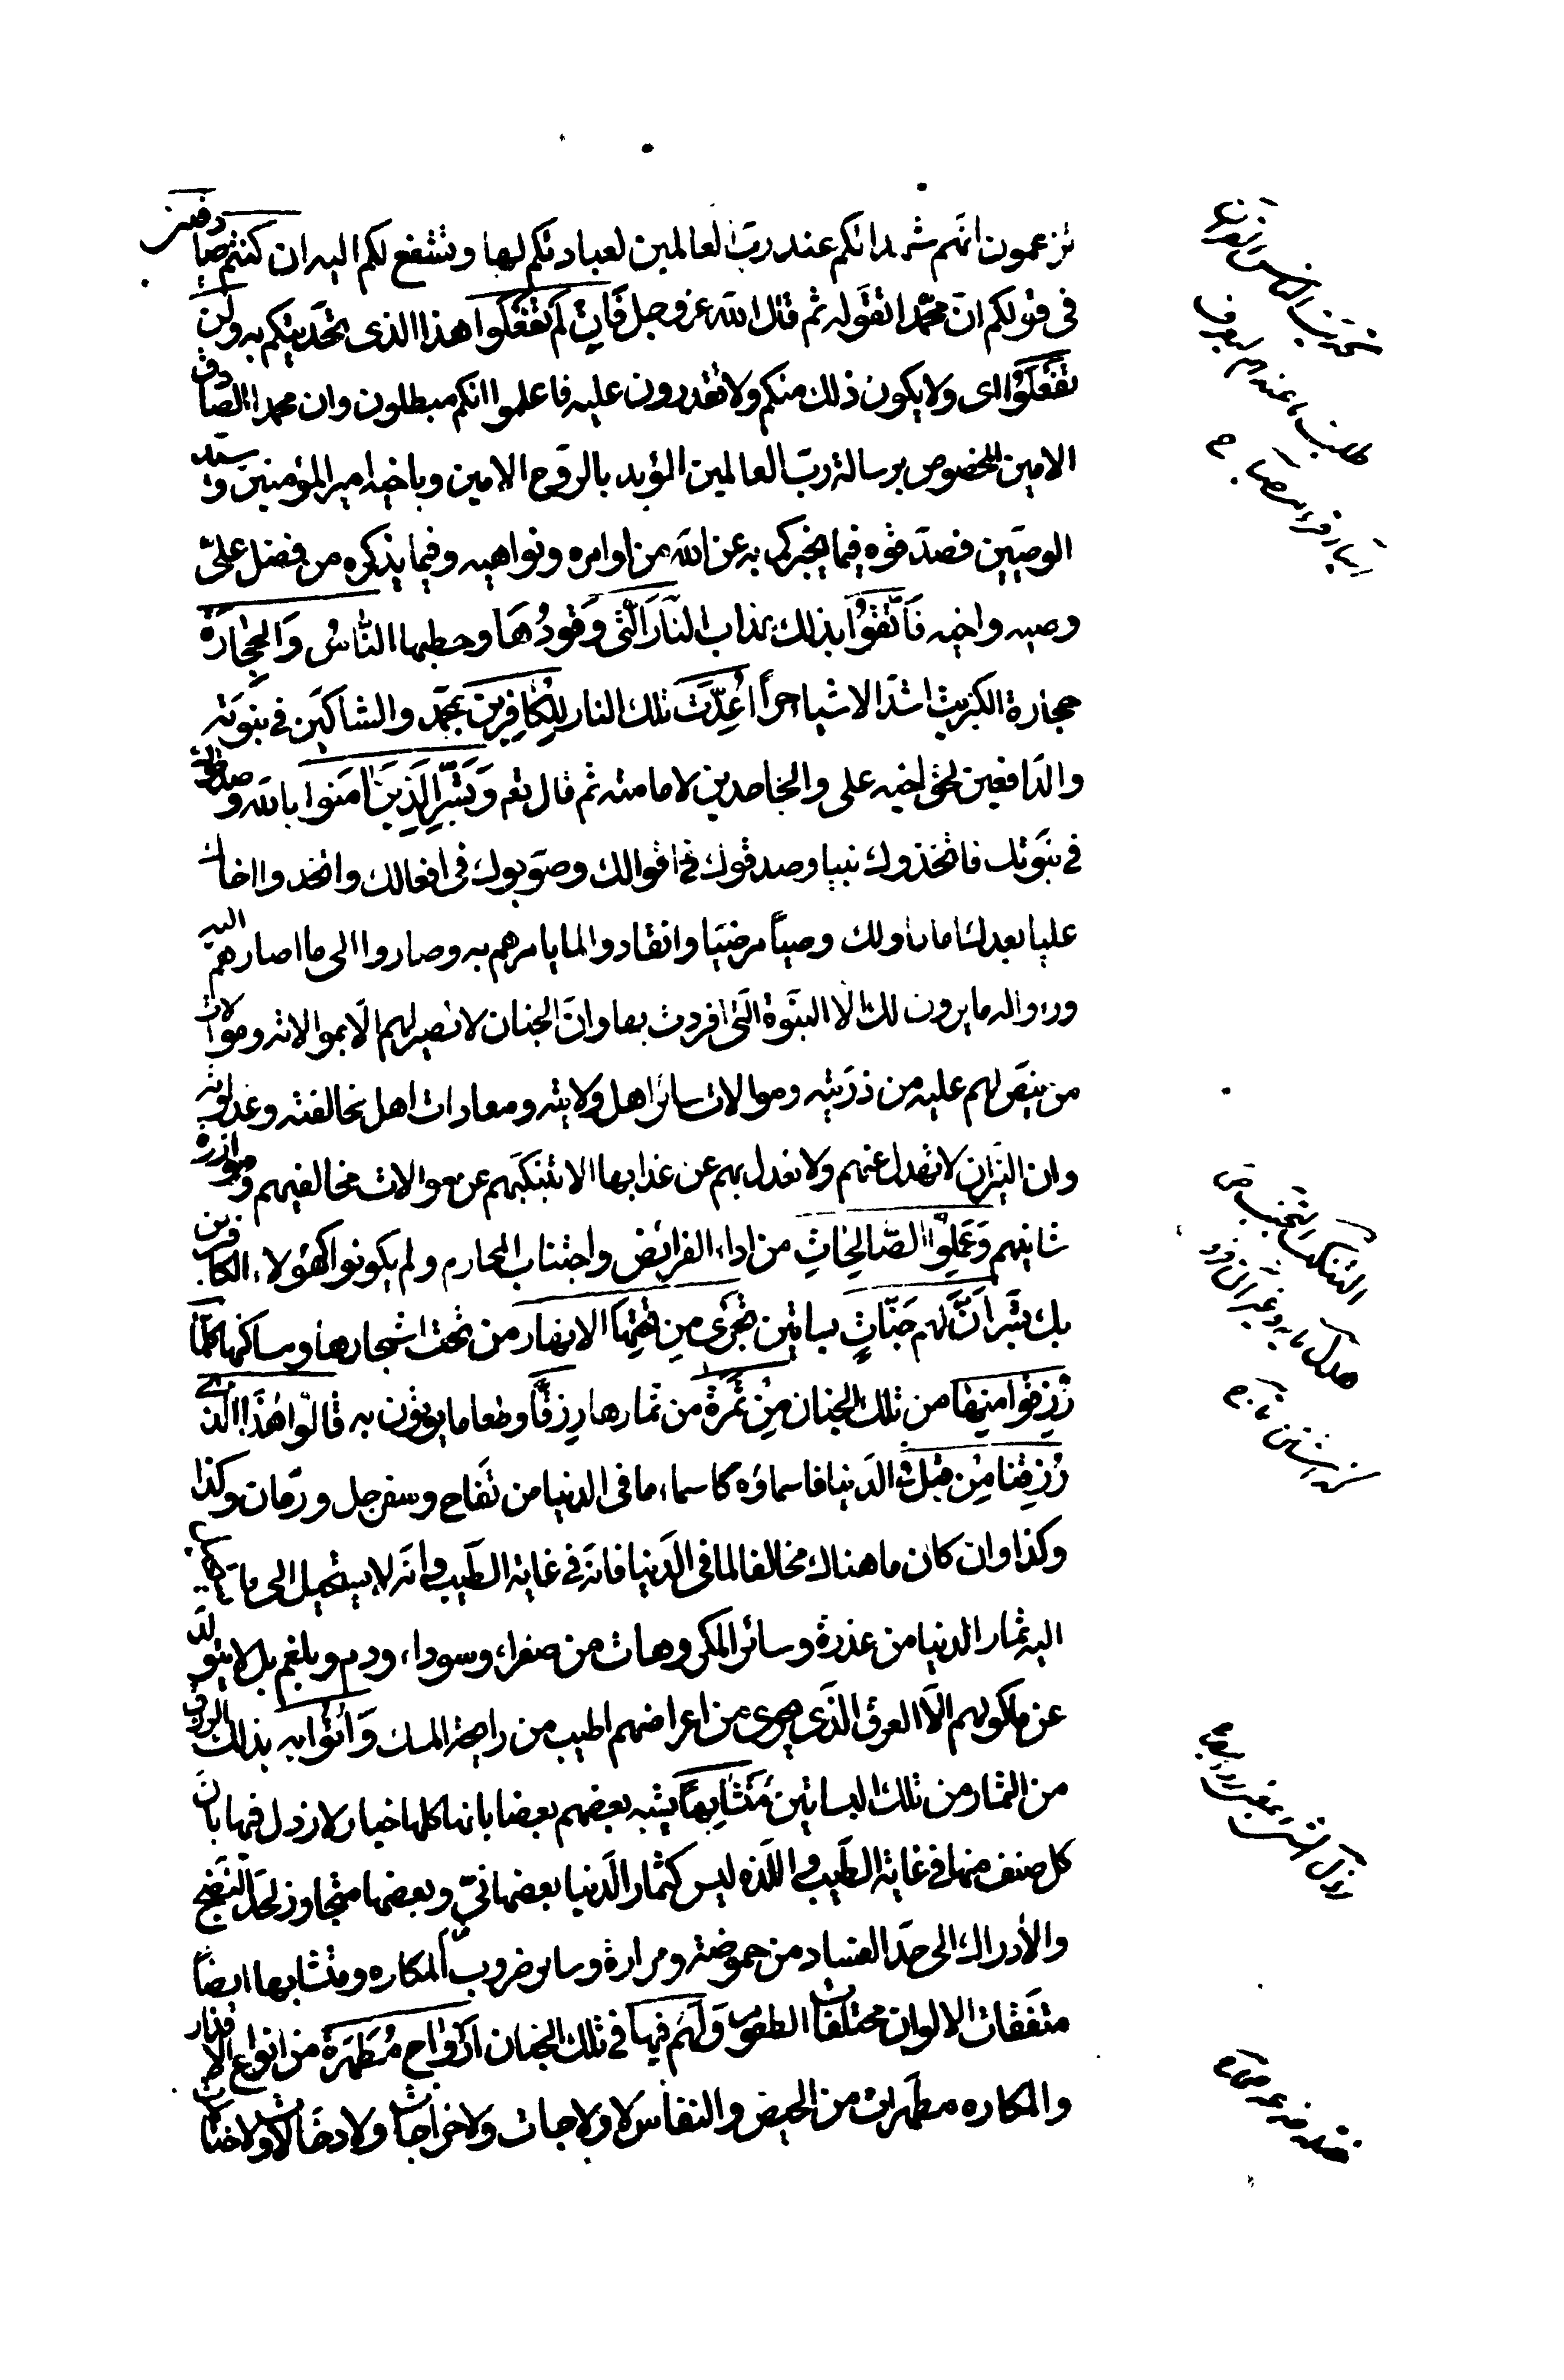 تزعمون انهم شهدائكم عند رب العالمين لعبادتكم لها وتشفع لكم اليه ان كنتم صادقين
فى قولكم ان محمدا تقوله ثم قال الله عز وجل فَاِن لَم تَفعَلُوا هذا الذى تحديتكم به ولَن
تَفعَلُوا اى ولا يكون ذلك منكم ولا تقدرون عليه فاعلموا انكم مبطلون وان محمدا الصادق
الامين المخصوص برسالة رب العالمين المؤيد بالروح الامين وباخيه امير المؤمنين وسيد
الوصيين فصدقوه فيما يخبركم به عن الله من اوامره ونواهيه وفيما يذكره من فضل علىّ
وصيه واخيه فَاتَّقُوا بذلك عذاب النَّارَ الَّتى وَقُودُهَا وحطبها النَّاسُ وَالحِجَارَةُ
حجارة الكبريت اشد الاشياء حراً اُعِدَّت تلك النار لِلكَافِرِينَ بمحمد والشاكين فى نبوته
والدافعين لحق اخيه على والجاحدين لامامته ثم قال تع وَبَشِّرِ الَّذِينَ اٰمَنوا بالله وصدقوك
فى نبوتك فاتخذوك نبيا وصدقوك فى اقوالك وصوبوك فى افعالك واتخذوا اخاك
عليا بعدك اماما ولك وصياً مرضيا وانقادوا لما يامرهم به وصاروا الى ما اصارهم اليه
وراوا له ما يرون لك الا النبوة التى افردت بها وان الجنان لا تصير لهم الا بموالاته وموالات
من ينص لهم عليه من ذريته وموالات سائر اهل ولايته ومعادات اهل مخالفته وعداوته
وان النيران لا تهدل عنهم ولا تعدل بهم عن عذابها الا بتنكبهم عن موالات مخالفيهم وموازرة
شانيهم وَعَمِلُوا الصَّالِحَاتِ من اداء الفرائض واجتناب المحارم ولم يكونوا كهؤلاء الكافرين
بك بشر اَنَّ لَهم جَنَّاتٍ بساتين تَجرى مِن تَحتِهَا الانهار من تحت اشجارها ومساكنها كُلَّمَا
رُزِقُوا مِنهَا من تلك الجنان مِن ثَمَرَةٍ من ثمارها رِزقًا وطعاما يوتون به قَالُوا هٰذَا الَّذى
رُزِقنَا مِن قَبلُ فى الدنيا فاسماؤه كاسماء ما فى الدنيا من تفاح وسفرجل ورمان وكذا
وكذا وان كان ما هناك مخالفا لما فى الدنيا فانه فى غاية الطيب وانه لا يستحيل الى ما يستحيل
اليه ثمار الدنيا من عذرة وسائر المكروهات من صفراء وسوداء ودم وبلغم بل لا يتولد
عن ماكولهم الا العرق الذى يجرى من اعراضهم اطيب من رايحة المسك وَاُتُوا بِه بذلك الرزق
من الثمار من تلك البساتين مُتَشَابِهاً يشبه بعضهم بعضا بانها كلها خيار لا رذل فيها بان
كل صنف منها فى غاية الطيب واللذه ليس كثمار الدنيا بعضها نىّ وبعضها متجاوز لحد النضج
والادراك الى حد الفساد من حموضة ومرارة وسائر ضروب المكاره ومتشابها ايضاً
متفقات الالوان مختلفات الطعوم وَلَهُم فيها فى تلك الجنان اَزوَاج مُطَهَّرَة من انواع الاقذار
والمكاره مطهرات من الحيض والنفاس لا ولاجات ولا خراجات ولا دخالات ولا ختالات